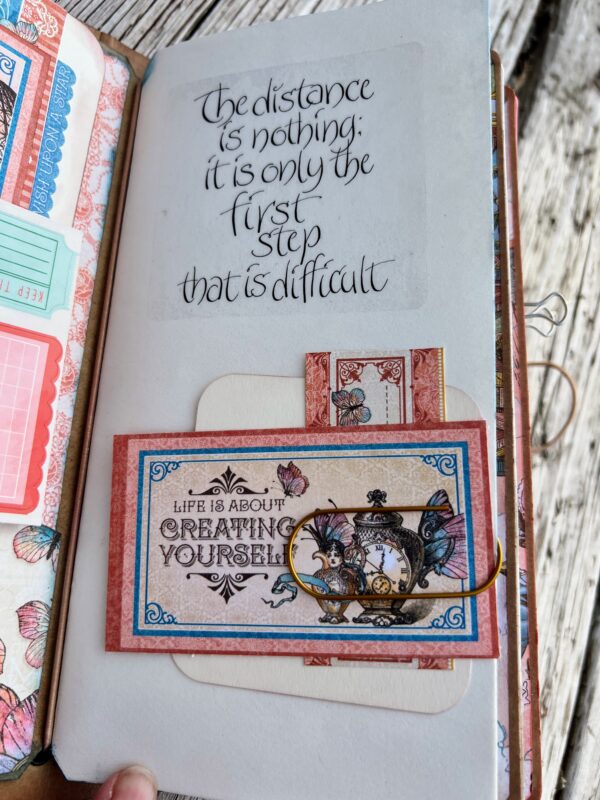 WISH UPON A STAR
KEEP T
The distance
is nothing;
it is only the
first
step
that is difficult
LIFE IS ABOUT
CREATING
YOURSELF